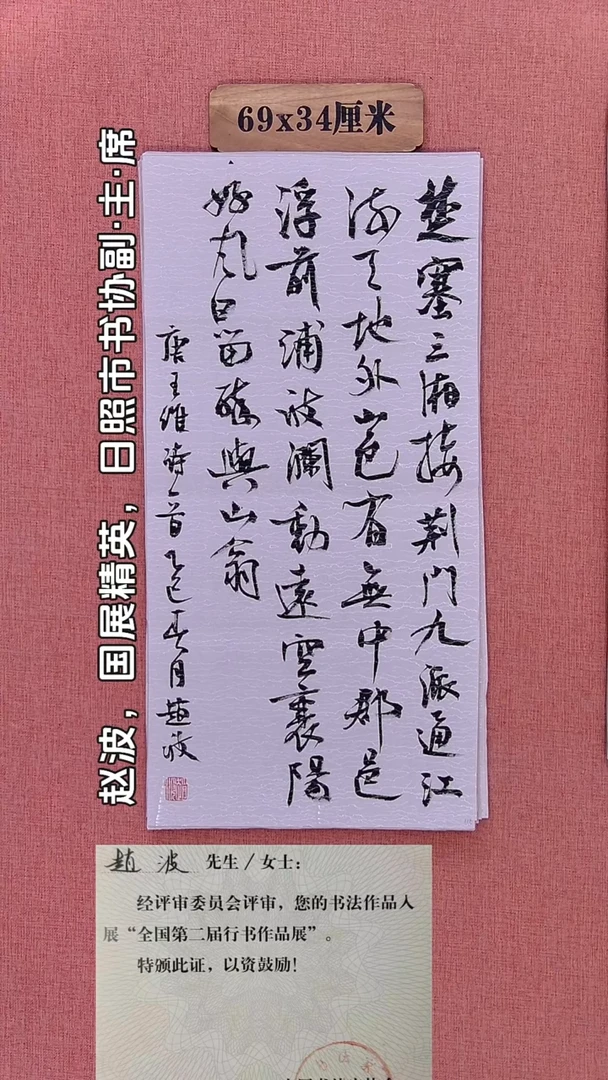 69x34厘米
楚塞三湘接荆門九派通江
流天地外山色有無中郡邑
浮前浦波瀾動遠空襄陽
好風日留醉與山翁
唐王維詩一首乙巳春月趙波
赵波，国展精英，日照市书协副·主·席
趙波 先生/女士：
经评审委员会评审，您的书法作品入
展“全国第二届行书作品展”。
特颁此证，以资鼓励！